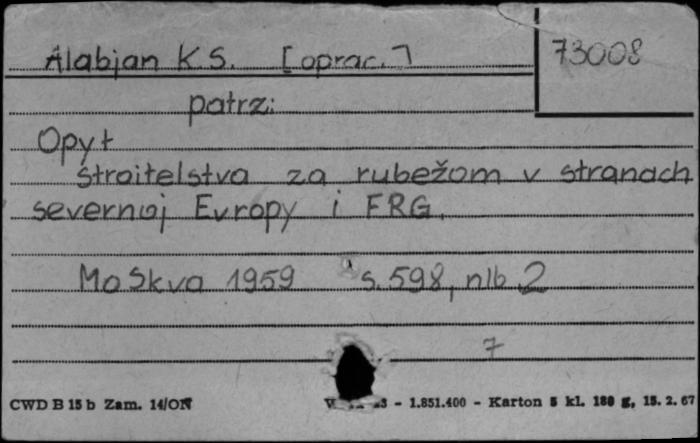 Alabjan K.S. [oprac.] 73008
patrz:
Opyt
stroitelstva za rubežom v stranach
severnoj Evropy i FRG.
Moskva 1959 s. 598, nlb 2
7
CWD B 15 b Zam. 14/ON - 1.851.400 - Karton 5 kl. 180 g, 15. 2. 67